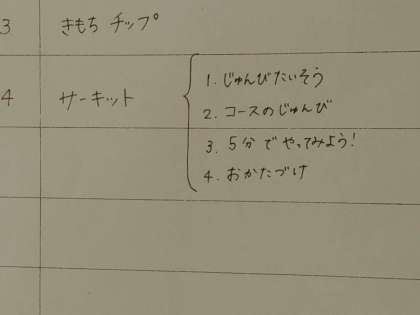 3 きもち チップ
4 サーキット
1. じゅんびたいそう
2. コースのじゅんび
3. 5分でやってみよう!
4. おかたづけ